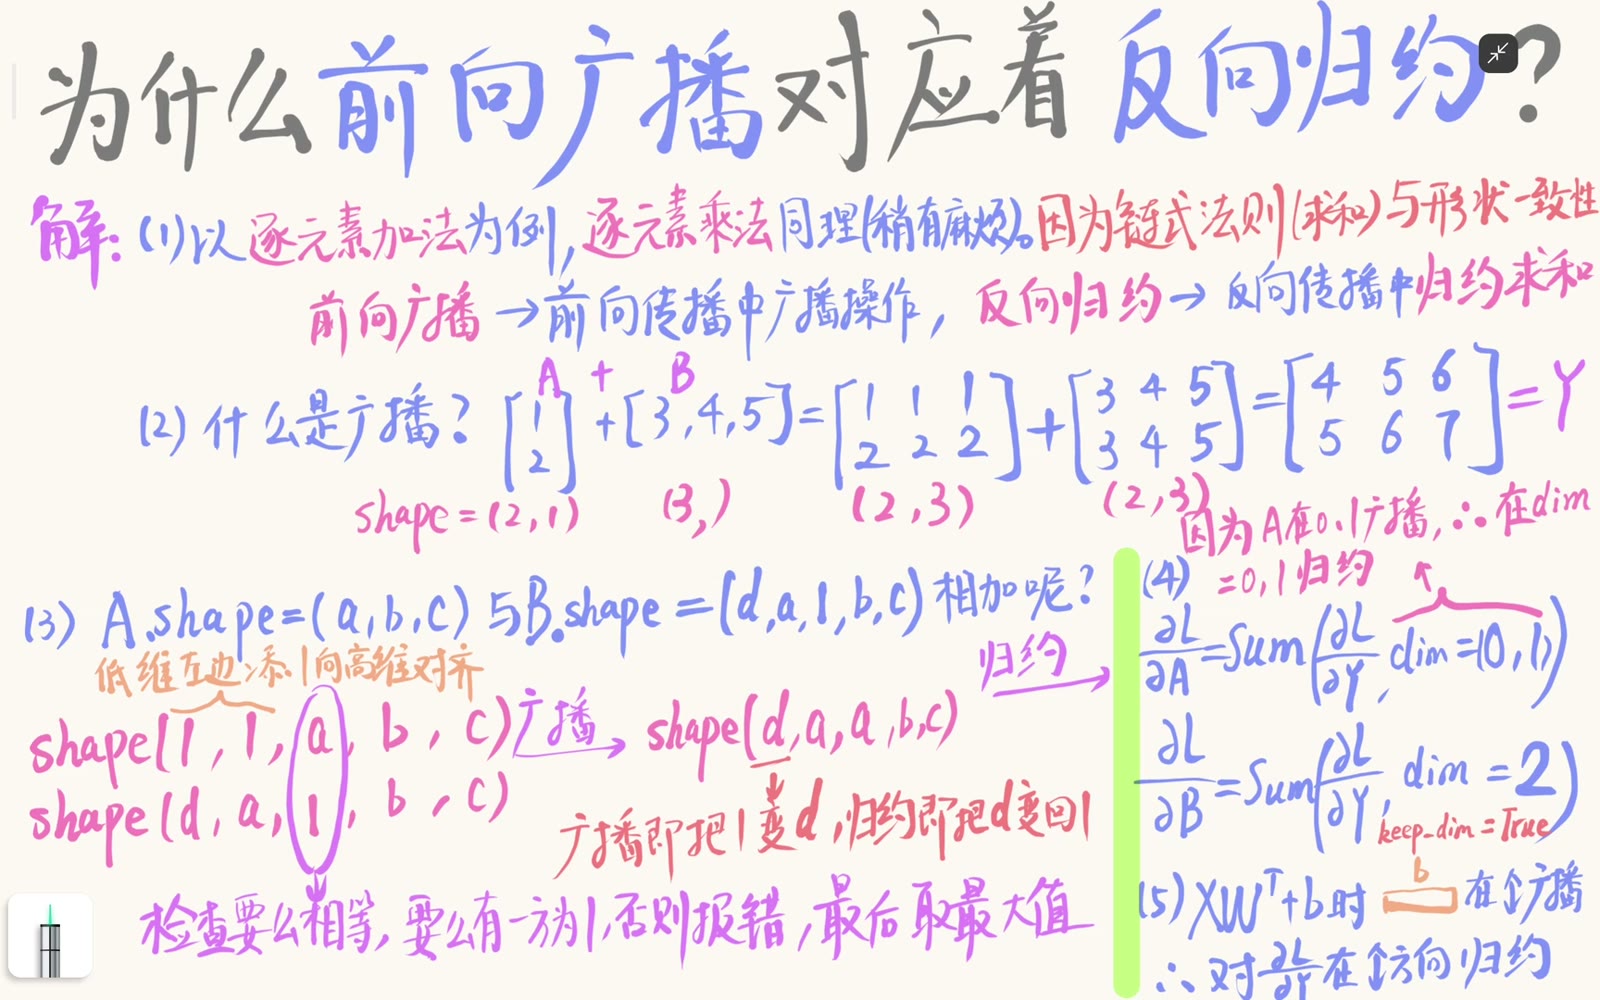 为什么前向广播对应着反向归约?
解: (1)以逐元素加法为例, 逐元素乘法同理(稍有麻烦)。因为链式法则(求和)与形状一致性
前向广播 → 前向传播中广播操作, 反向归约 → 反向传播中归约求和
A + B
(2) 什么是广播? [1 2] + [3,4,5] = [1 1 1 2 2 2] + [3 4 5 3 4 5] = [4 5 6 5 6 7] = Y
shape = (2,1) (3,) (2,3) (2,3)
(3) A.shape=(a,b,c) 与B.shape=(d,a,1,b,c) 相加呢?
低维左边添1向高维对齐
shape(1, 1, a, b, c) 广播 → shape(d,a,a,b,c)
shape(d, a, 1, b, c)
广播即把1变d,归约即把d变回1
检查要么相等, 要么有一方为1,否则报错, 最后取最大值
归约 →
因为A在0、1广播, ∴在dim
=0,1归约
(4)
∂L/∂A = Sum(∂L/∂Y, dim=(0,1))
∂L/∂B = Sum(∂L/∂Y, dim=2)
keep-dim=True
b
(5) XWᵀ+b时 在↕广播
∴对∂L/∂Y在↕方向归约